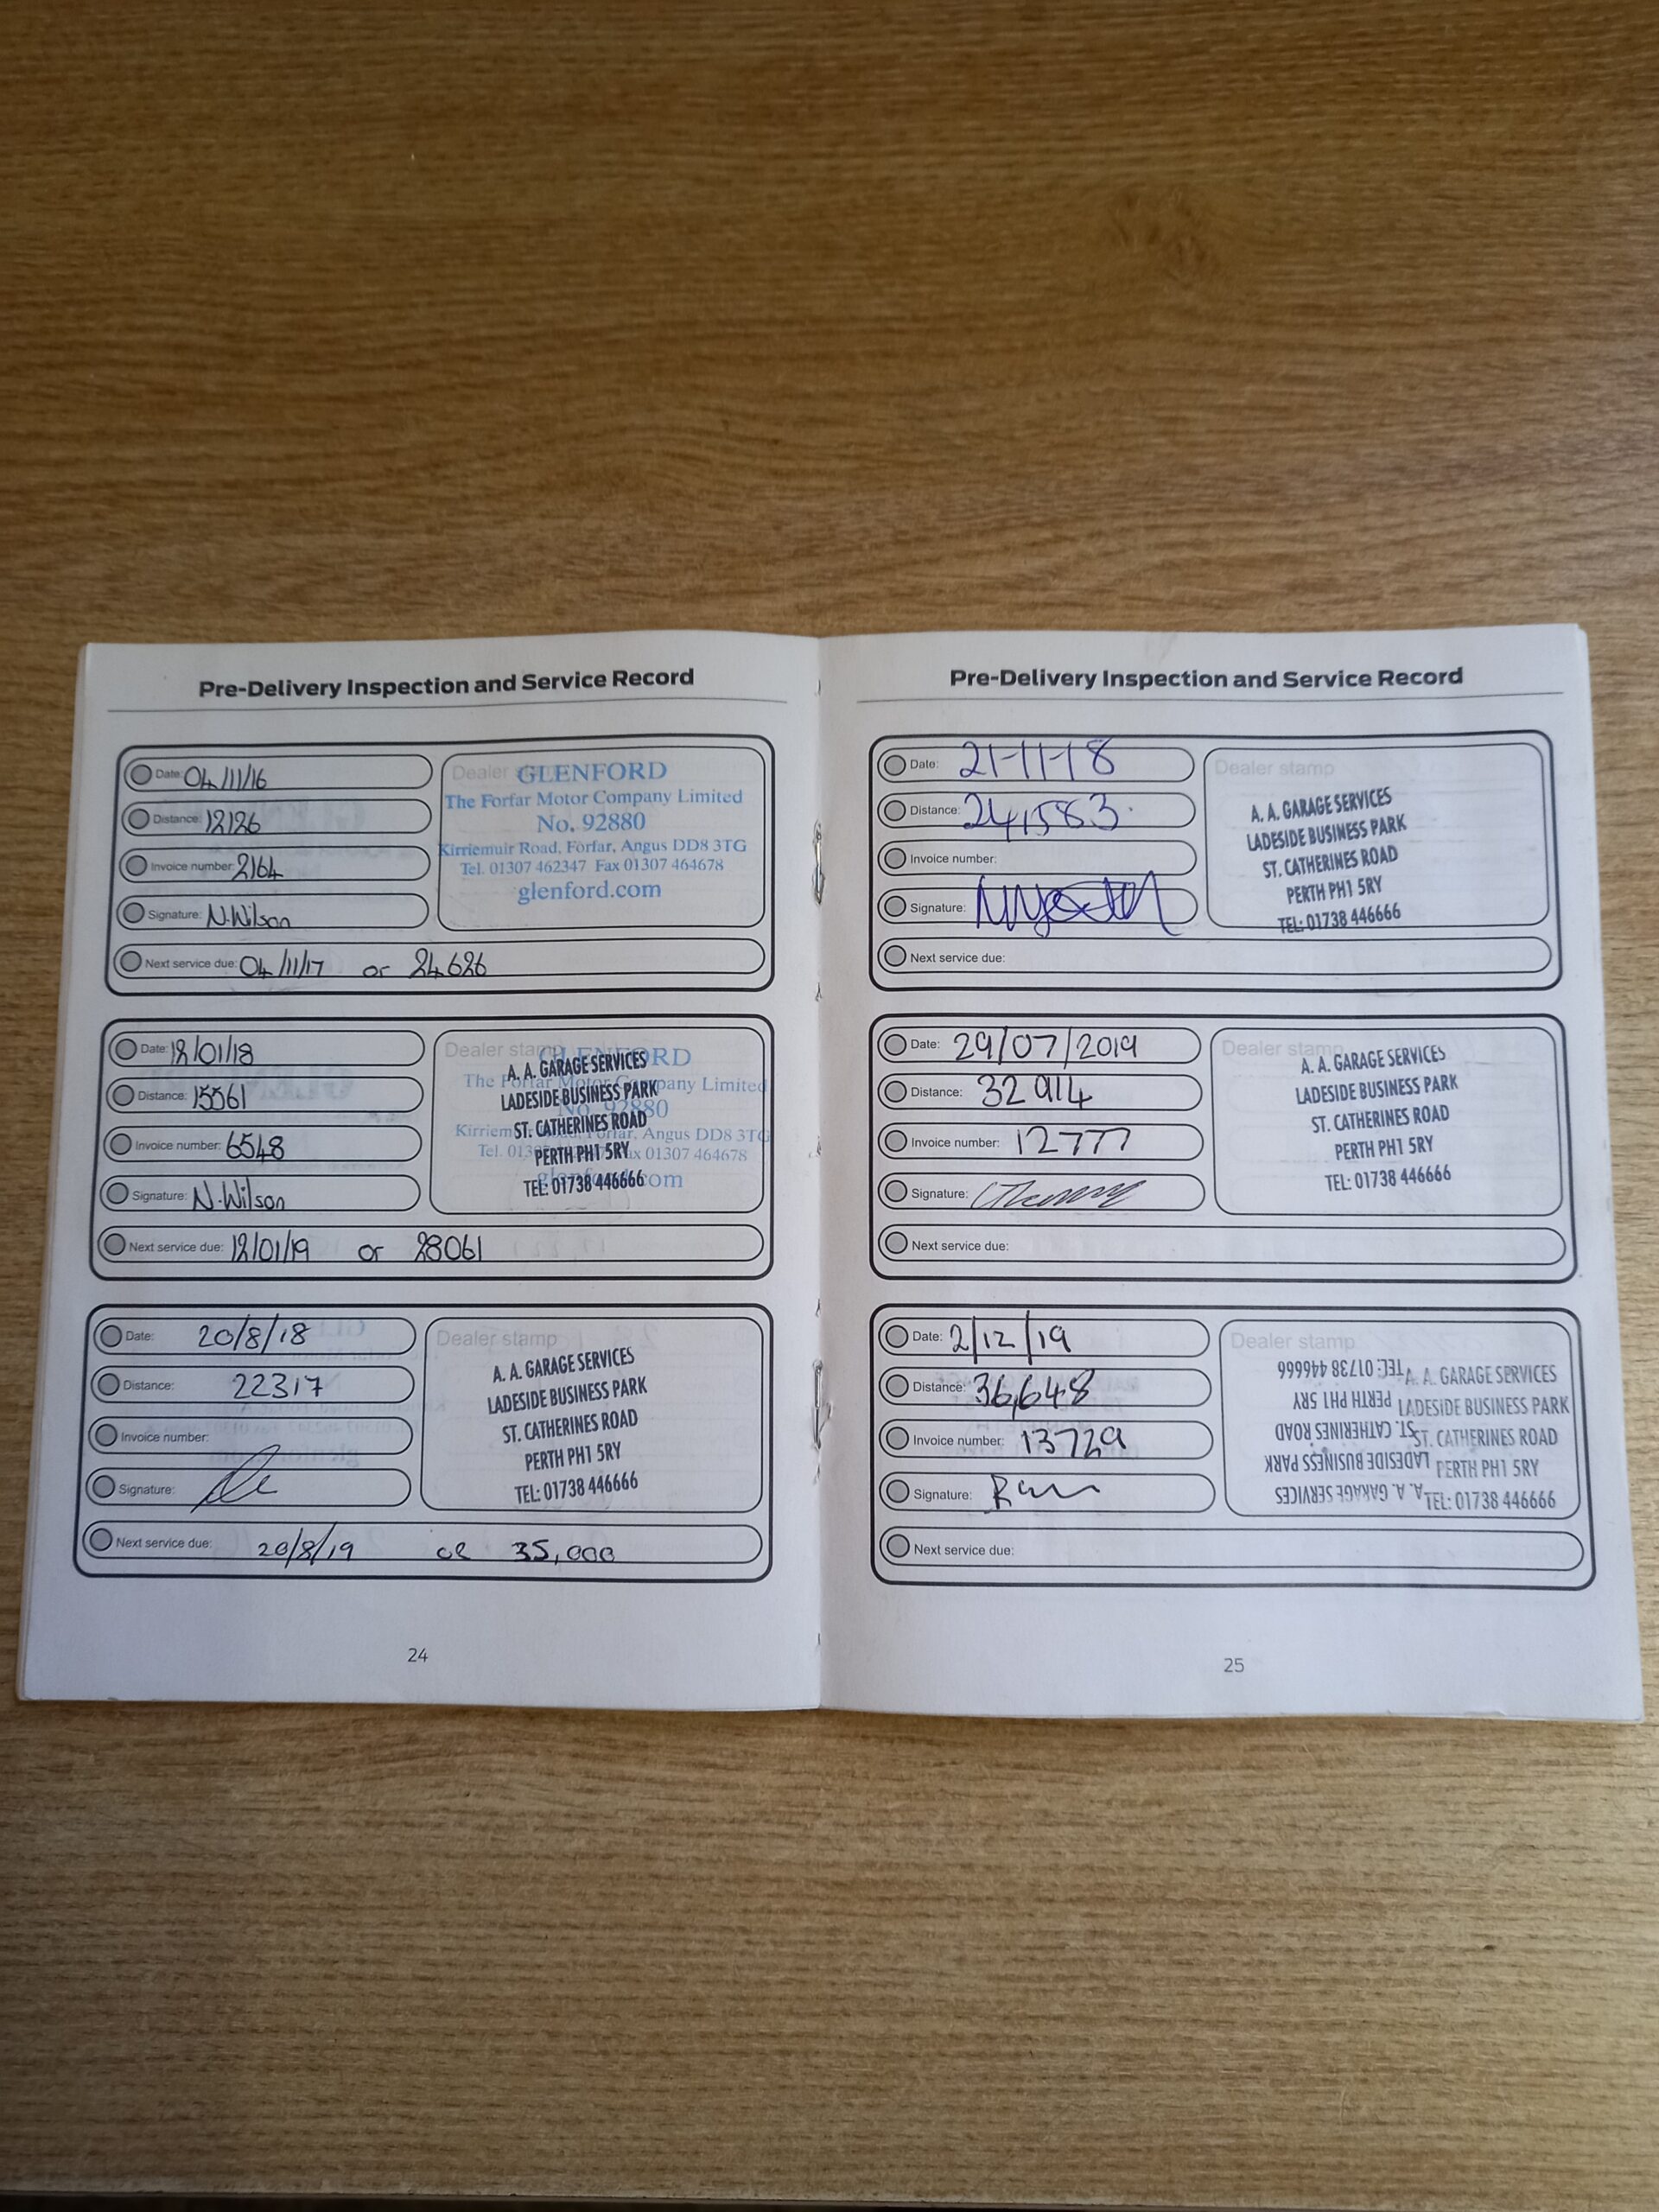 Pre-Delivery Inspection and Service Record
Date: 04/11/16
Distance: 12126
Invoice number: 2164
Signature: N.Wilson
Next service due: 04/11/17 or 24626
Dealer stamp
GLENFORD
The Forfar Motor Company Limited
No. 92880
Kirriemuir Road, Forfar, Angus DD8 3TG
Tel. 01307 462347 Fax 01307 464678
glenford.com
Date: 12/01/18
Distance: 15561
Invoice number: 6548
Signature: N.Wilson
Next service due: 12/01/19 or 28061
Dealer stamp
GLENFORD
The Forfar Motor Company Limited
No. 92880
Kirriemuir Road, Forfar, Angus DD8 3TG
Tel. 01307 462347 Fax 01307 464678
glenford.com
A. A. GARAGE SERVICES
LADESIDE BUSINESS PARK
ST. CATHERINES ROAD
PERTH PH1 5RY
TEL: 01738 446666
Date: 20/8/18
Distance: 22317
Invoice number:
Signature:
Next service due: 20/8/19 or 35,000
Dealer stamp
A. A. GARAGE SERVICES
LADESIDE BUSINESS PARK
ST. CATHERINES ROAD
PERTH PH1 5RY
TEL: 01738 446666
24
Pre-Delivery Inspection and Service Record
Date: 21-11-18
Distance: 24,583.
Invoice number:
Signature:
Next service due:
Dealer stamp
A. A. GARAGE SERVICES
LADESIDE BUSINESS PARK
ST. CATHERINES ROAD
PERTH PH1 5RY
TEL: 01738 446666
Date: 29/07/2019
Distance: 32914
Invoice number: 12777
Signature:
Next service due:
Dealer stamp
A. A. GARAGE SERVICES
LADESIDE BUSINESS PARK
ST. CATHERINES ROAD
PERTH PH1 5RY
TEL: 01738 446666
Date: 2/12/19
Distance: 36,648
Invoice number: 13729
Signature:
Next service due:
Dealer stamp
A. A. GARAGE SERVICES
LADESIDE BUSINESS PARK
ST. CATHERINES ROAD
PERTH PH1 5RY
TEL: 01738 446666
A. A. GARAGE SERVICES
LADESIDE BUSINESS PARK
ST. CATHERINES ROAD
PERTH PH1 5RY
TEL: 01738 446666
25